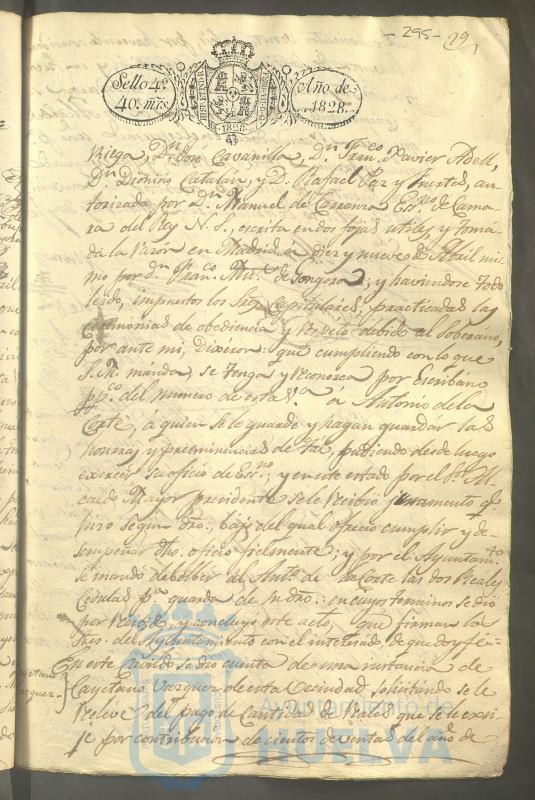 -295- 29
Sello 4º
40. mrs.
Año de
1828.
HISPANIARUM
1828
Riega, Dn José Cavanilla, Dn Franco Xavier Adell,
Dn Dionisio Catalan, y D. Rafael Paz y Fuertes, au-
torizada por Dn Manuel de Carranza Esno de Cama-
ra del Rey N. S., escrita en dos fojas utiles y toma-
da la razon en Madrid à diez y nueve de Abril mi-
mo por Dn Franco de Gongora; y haviendose todo
leido, impuestos los Sres Capitulares, practicadas las
ceremonias de obediencia y respeto debido al Soberano,
por ante mi, Dixeron: que cumpliendo con lo que
S. M. manda, se tenga y reconosca por Escribano
ppco del numero de esta Va a Antonio de la
Corte, á quien se le guarde y hagan guardar las
honras y preeminencias de tal, pudiendo desde luego
exercer su oficio de Esno; y en este estado por el Sr Al-
calde Mayor presidente se le recibio juramento q
hizo segun dro. bajo del qual ofrecio cumplir y de-
sempeñar dho. oficio fielmente; y por el Ayuntamto
se mandó debolber al Anto de la Corte las dos Reales
Cedulas pa guarda de su dro.: en cuyos terminos se dio
por recibido, y concluyo este acto, que firman los
Sres. del Ayuntamiento con el interesado, de que doy fé=
Cayetano
Vazquez.
En este Cavildo se dio cuenta de una instancia de
Cayetano Vazquez de esta Vecindad, solicitando se le
releve del pago de Cantidad de Reales que se le exi-
je por contribucion de cientos de ventas del año de
Ayuntamiento de
HUELVA